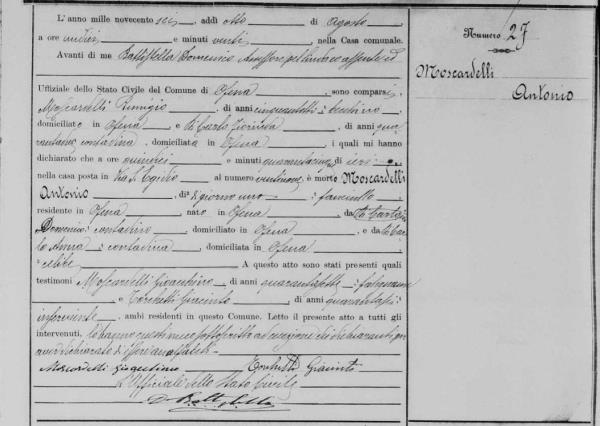 L'anno mille novecento sei, addì otto di Agosto
a ore undici e minuti venti, nella Casa comunale.
Avanti di me Battistella Domenico Assessore pel Sindaco assente ed
Uffiziale dello Stato Civile del Comune di Ofena, sono comparsi
Moscardelli Remigio, di anni cinquantotto,
domiciliato in Ofena e di anni qua
rantuno contadina, domiciliata in Ofena, i quali mi hanno
dichiarato che a ore quindici e minuti quarantacinque di ieri,
nella casa posta in Via S. Egidio al numero ventinove, è morto Moscardelli
Antonio, di giorno uno, fanciullo,
residente in Ofena, nato in Ofena, da
Domenico contadino, domiciliato in Ofena, e da
Anna contadina, domiciliata in Ofena
celibe. A questo atto sono stati presenti quali
testimoni Moscardelli Gioacchino, di anni quarantasette,
e Torchetti Giacinto, di anni quarantasei
inserviente, ambi residenti in questo Comune. Letto il presente atto a tutti gli
intervenuti, lo hanno questi meco sottoscritto ad eccezione dei dichiaranti per
aver dichiarato di essere analfabeti.
Moscardelli Gioacchino Torchetti Giacinto
L'Officiale dello Stato Civile
D. Battistella
Numero 27
Moscardelli
Antonio